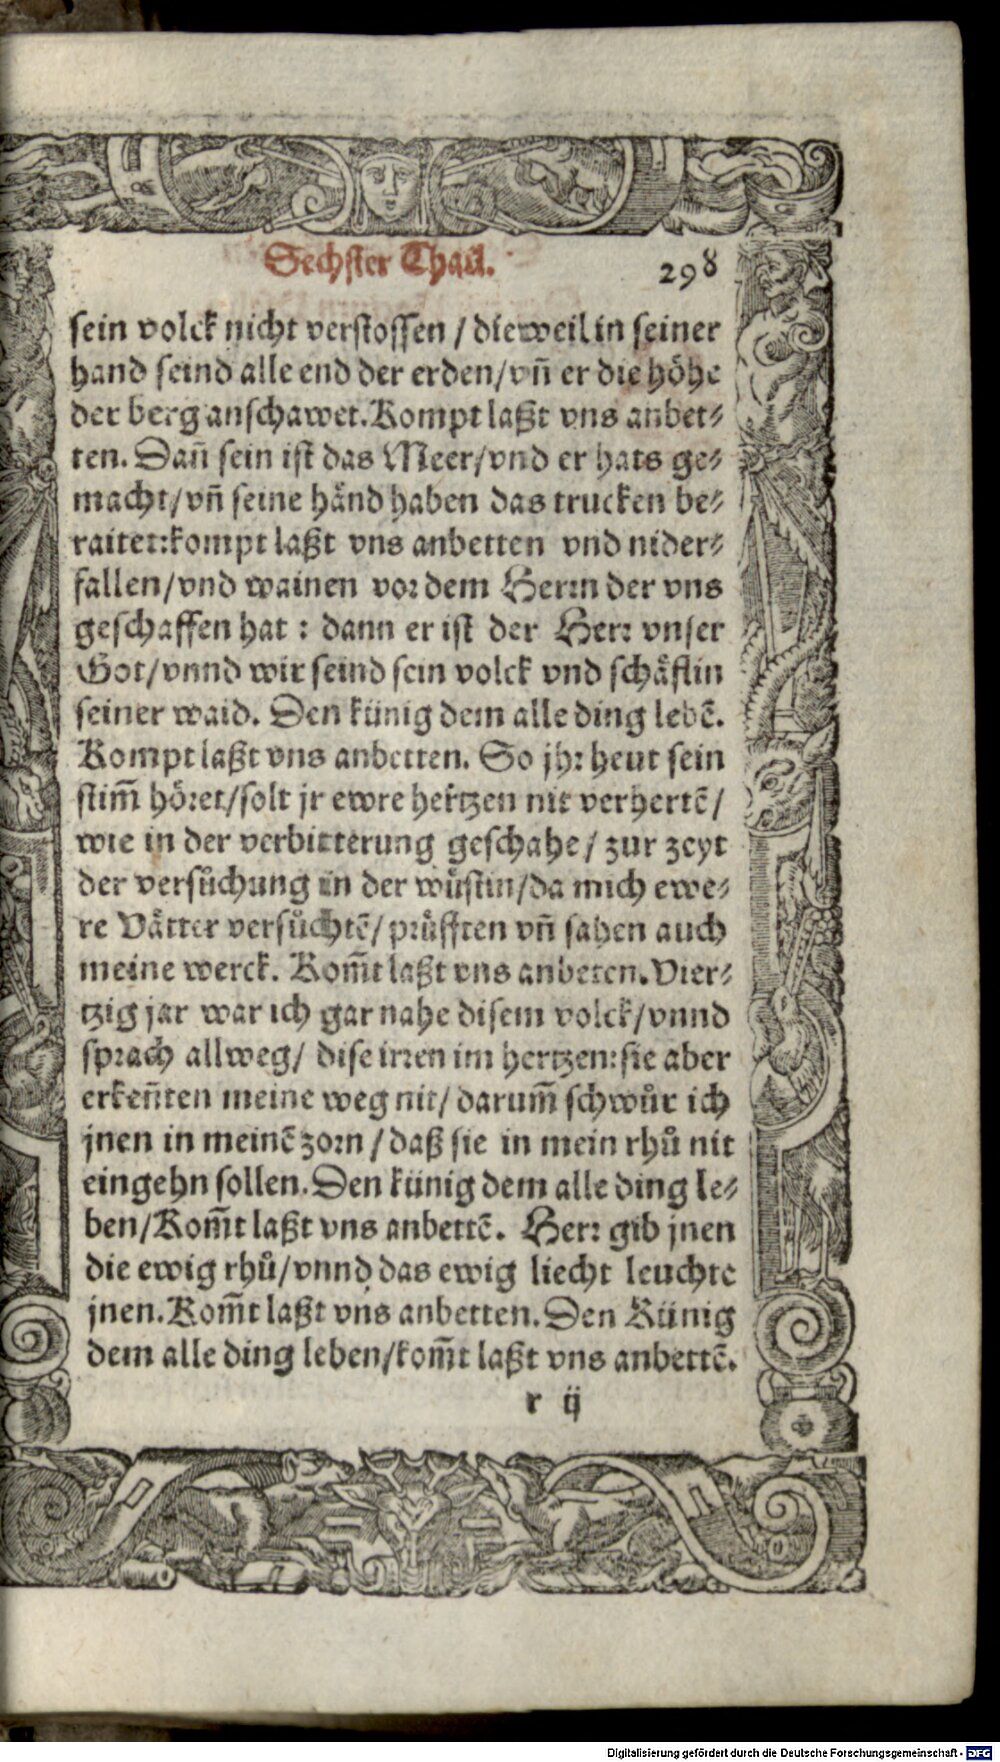 Sechster Thail. 298
sein volck nicht verstossen / dieweil in seiner
hand seind alle end der erden/vñ er die höhe
der berg anschawet. Kompt laßt vns anbet⸗
ten. Dañ sein ist das Meer/vnd er hats ge⸗
macht/vñ seine händ haben das trucken be⸗
raitet:kompt laßt vns anbetten vnd nider⸗
fallen/vnd wainen vor dem Herrn der vns
geschaffen hat : dann er ist der Herr vnser
Got/vnnd wir seind sein volck vnd schäflin
seiner waid. Den künig dem alle ding lebẽ.
Kompt laßt vns anbetten. So jhr heut sein
stim̃ höret/solt jr ewre hertzen nit verhertẽ/
wie in der verbitterung geschahe/ zur zeyt
der versůchung in der wüstin/da mich ewe⸗
re Vätter versůchtẽ/ prüfften vñ sahen auch
meine werck. Kom̃t laßt vns anbeten. Vier⸗
tzig jar war ich gar nahe disem volck/vnnd
sprach allweg/ dise irren im hertzen:sie aber
erkeñten meine weg nit/ darum̃ schwůr ich
jnen in meinẽ zorn / daß sie in mein rhů nit
eingehn sollen. Den künig dem alle ding le⸗
ben/Kom̃t laßt vns anbettẽ. Herr gib jnen
die ewig rhů/vnnd das ewig liecht leuchte
jnen. Kom̃t laßt vns anbetten. Den Künig
dem alle ding leben/kom̃t laßt vns anbettẽ.
r ij
Digitalisierung gefördert durch die Deutsche Forschungsgemeinschaft - DFG